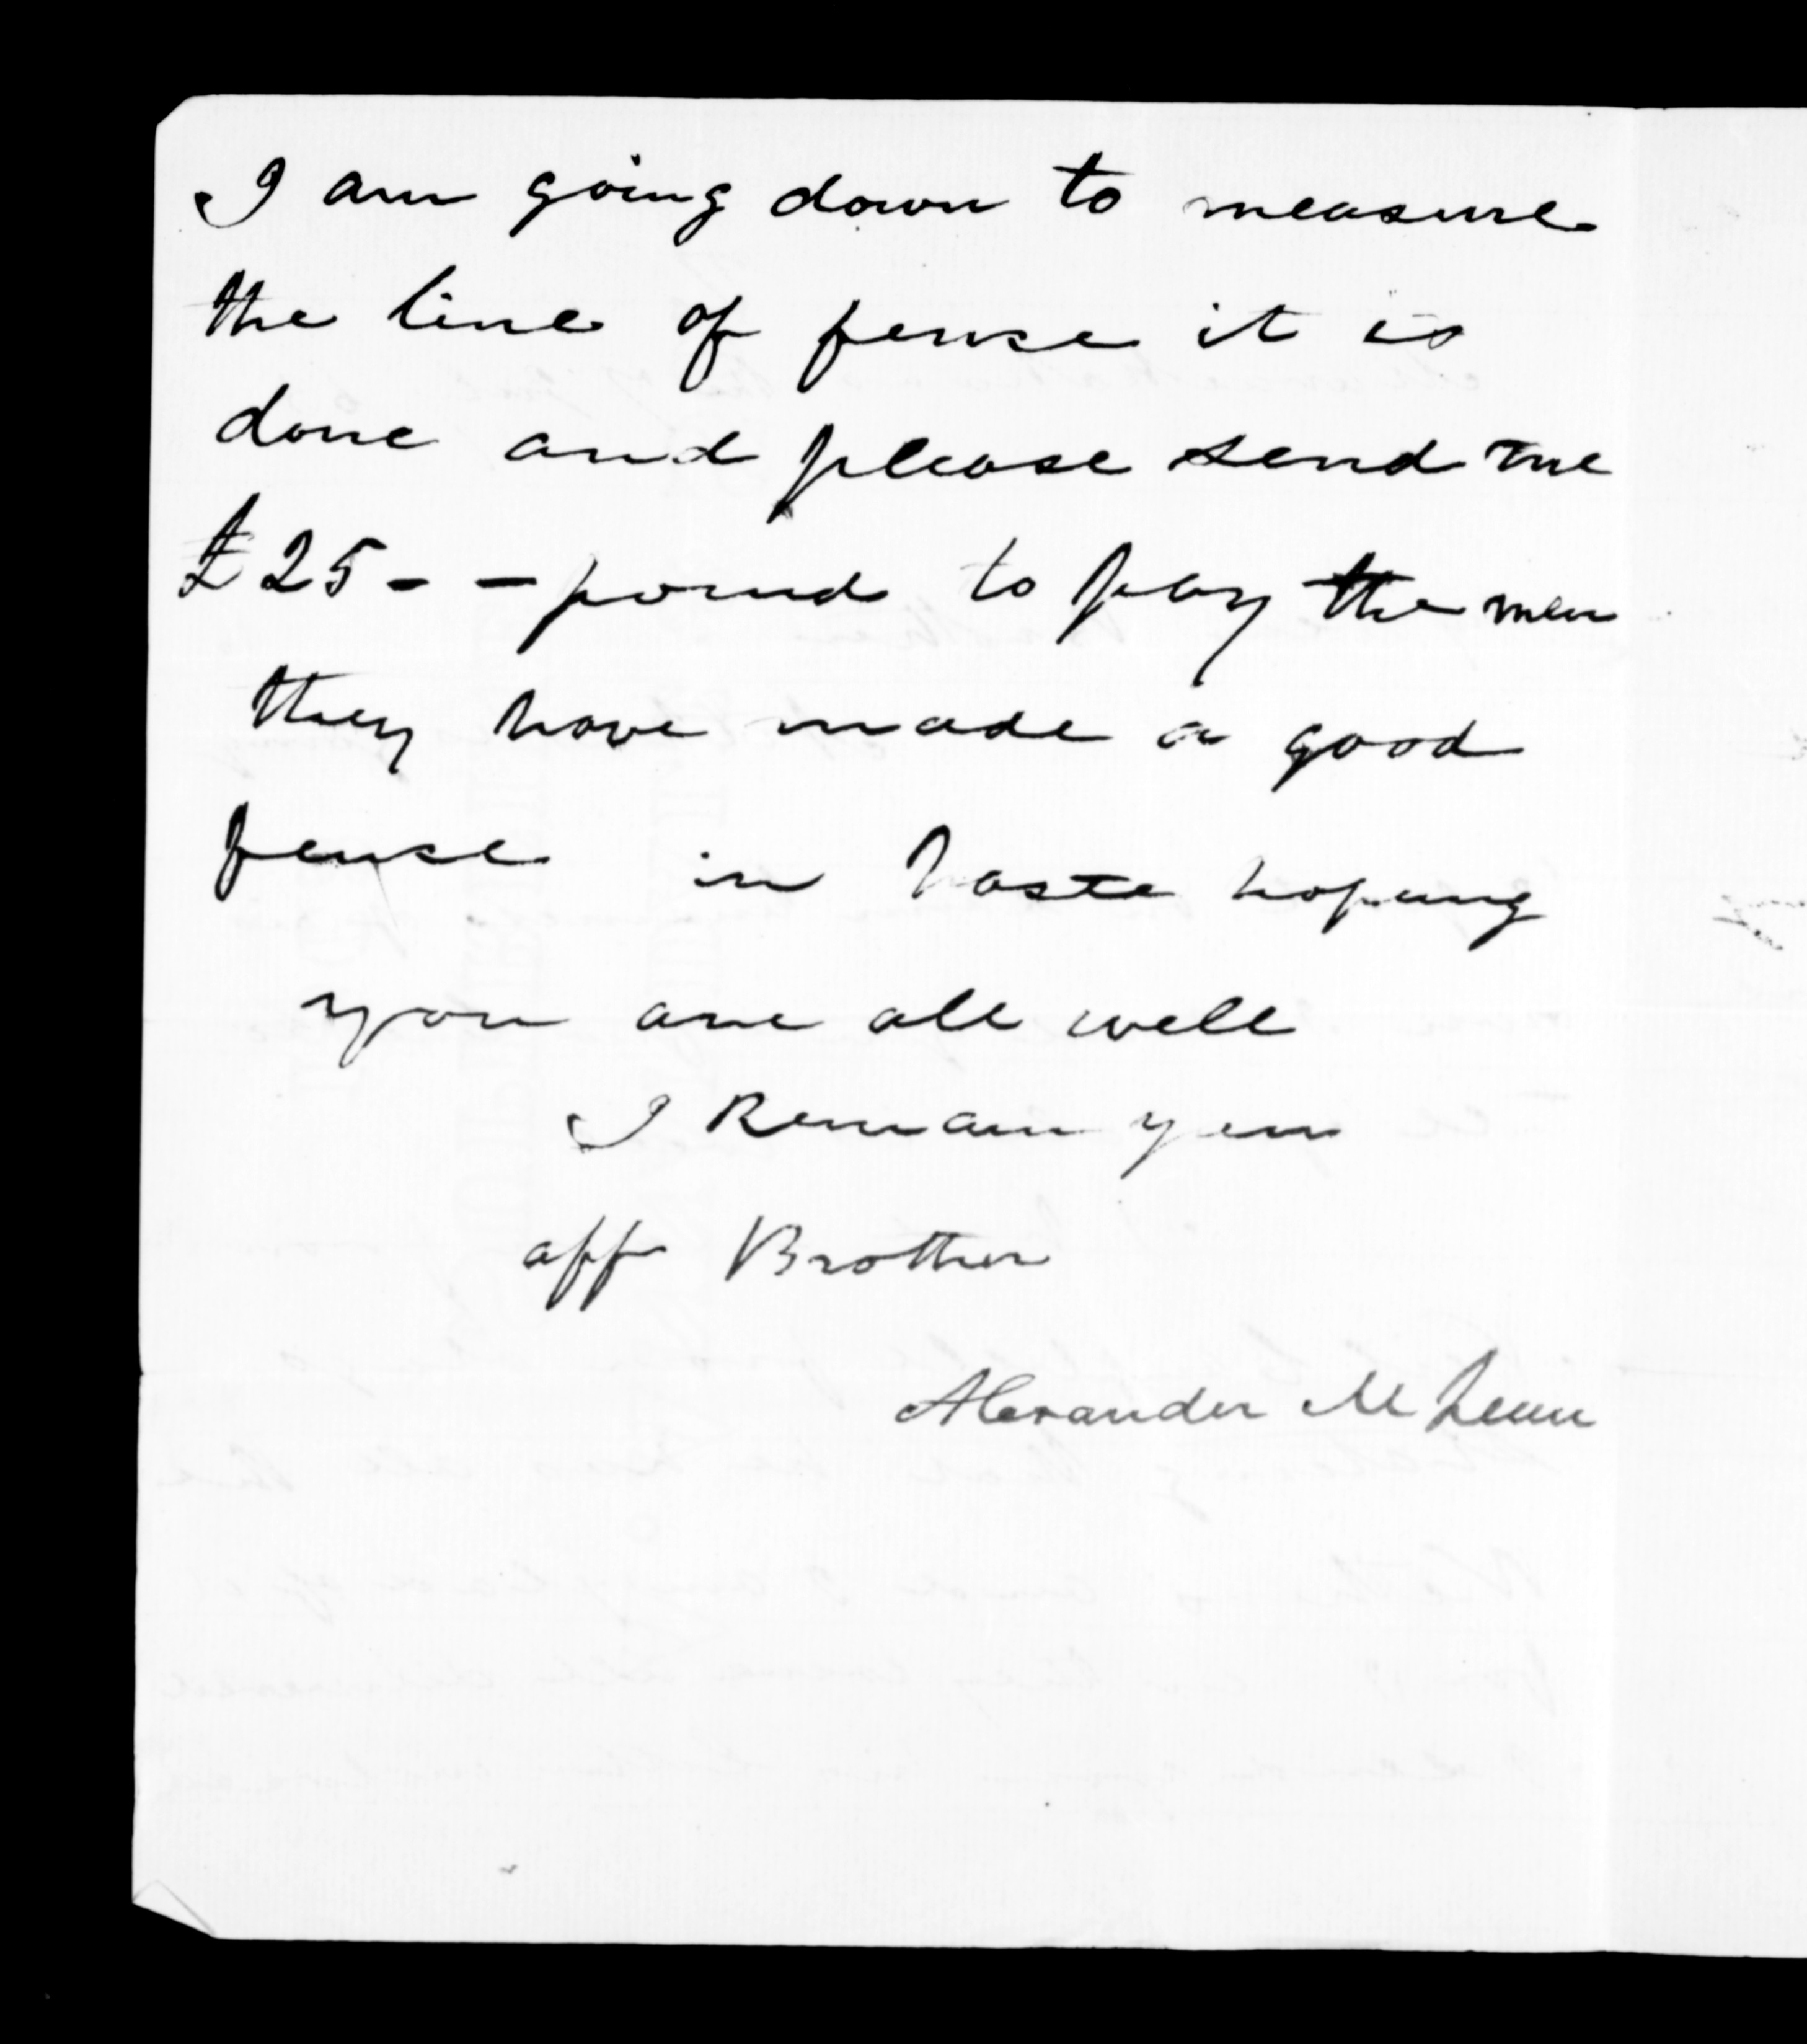 I am going down to measure
the line of fense it is
done and please send me
£25 - - pound to pay the men
they have made a good
fense in haste hoping
you are all well
I Remain your
aff Brother
Alexander McLean